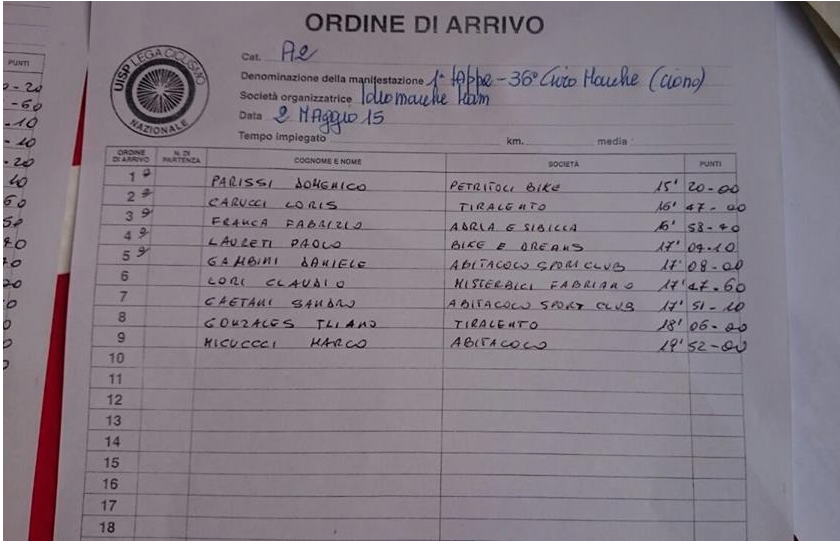 ORDINE DI ARRIVO
UISP LEGA CICLISMO
NAZIONALE
Cat. A2
Denominazione della manifestazione 1ª tappa - 36° Giro Marche (crono)
Società organizzatrice team
Data 2 Maggio 15
Tempo impiegato km. media
ORDINE DI ARRIVO N. DI PARTENZA COGNOME E NOME SOCIETÀ PUNTI
1 PARISSI DOMENICO PETRITOLI BIKE 15' 20-00
2 CARUCCI LORIS TIRALENTO 16' 47-00
3 FRANCA FABRIZIO ADRIA E SIBILLA 16' 58-70
4 LAURETI PAOLO BIKE E DREAMS 17' 04-10
5 GAMBINI DANIELE ABITACOLO SPORT CLUB 17' 08-00
6 LORI CLAUDIO MISTERBICI FABRIANO 17' 47-60
7 GAETANI SANDRO ABITACOLO SPORT CLUB 17' 51-10
8 GONZALES TIRALENTO 18' 06-00
9 MICUCCCI MARCO ABITACOLO 19' 52-00
10
11
12
13
14
15
16
17
18
PUNTI